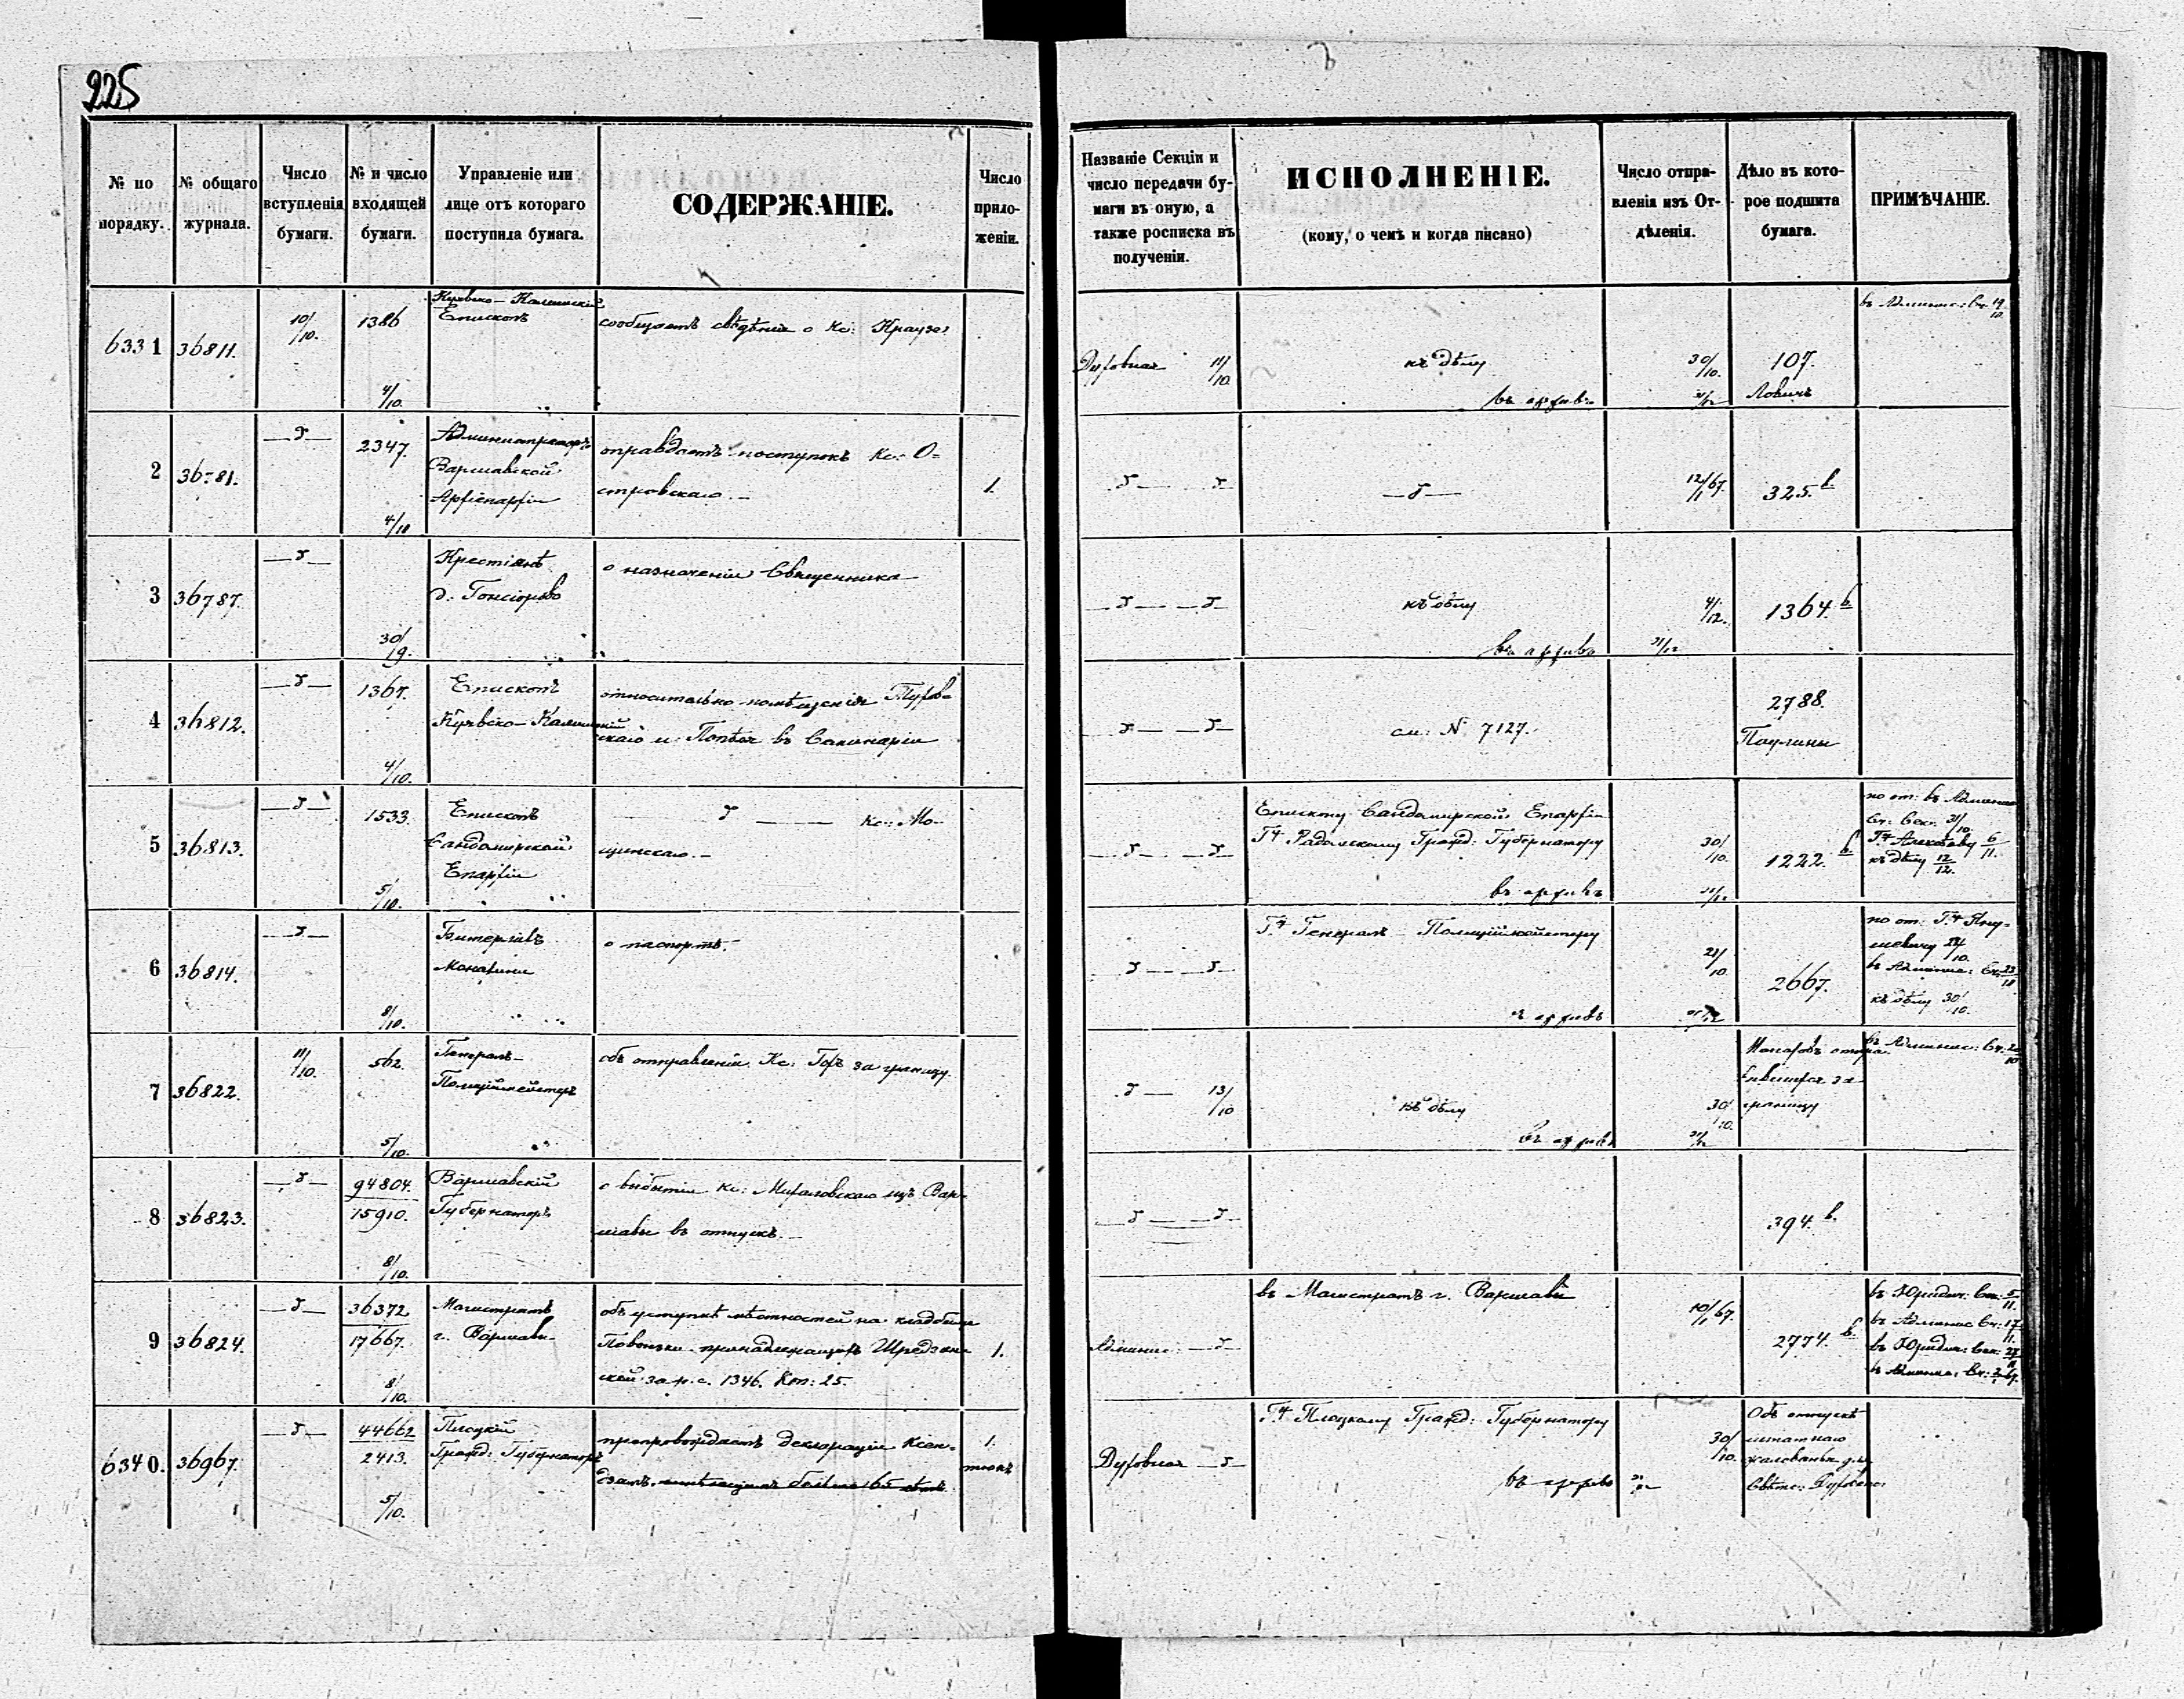 225
№ по порядку.
№ общаго журнала.
Число вступленія бумаги.
№ и число входящей бумаги.
Управленіе или лице отъ котораго поступила бумага.
СОДЕРЖАНІЕ.
Число приложеніи.
Названіе Секціи и число передачи бумаги въ оную, а также росписка въ полученіи.
ИСПОЛНЕНІЕ.
(кому, о чемъ и когда писано)
Число отправленія изъ Отдѣленія.
Дѣло въ которое подшита бумага.
ПРИМѢЧАНІЕ.
6331 36811. 10/10. 1386 4/10.
Куявско-Калишскій
Епископъ
сообщаетъ свѣдѣнія о Кс: Краузе
Духовная 11/10.
къ дѣлу
въ архивъ
30/10. 31/12
107.
Ловичъ
въ Админис: Ск: 19/10.
2 36781. 2347. 4/10
Администраторъ
Варшавской
Архіепархіи
оправдаетъ поступокъ Кс: О=
стровскаго.
1.
12/1 67.
325. b.
3 36787. 30/9.
Крестіянѣ
д:
о назначеніи Священника
къ дѣлу
въ архивъ
4/12. 31/12
1364. b
4 36812. 1367. 4/10.
Епископъ
Куявско-Калишскій
относительно помѣщенія
скаго и въ Семинаріи
см: № 7127.
2788.
Паулины
5 36813. 1533. 5/10.
Епископъ
Сандомирской
Епархіи
Кс: Мо-
щинскаго.
Епископу Сандомирской Епархіи
Гну Радомскому Гражд: Губернатору
въ архивъ
30/10. 31/12
1222. b.
по от: въ Админис
Ск: Сек: 31/10.
Гну 6/11.
къ дѣлу 12/12.
6 36814. 8/10.
Монахини
о паспортѣ.
Гну Генералъ-Полицiймейстеру
въ архивъ
21/10. 31/12
2667.
по от: Гну Яну-
шевичу 14/10.
въ Админис: Ск: 23/10
къ дѣлу 30/10.
7 36822. 11/10. 562. 5/10.
Генералъ-
Полиціймейстеръ
объ отправленіи Кс: за границу.
13/10
къ дѣлу
въ архивъ
30/10. 31/12
границу
въ Админис: Ск:
8 36823. 94804. 15910. 8/10.
Варшавскій
Губернаторъ
о выбытіи Кс: Михаловскаго изъ Вар-
шавы въ отпускъ.
394. b.
9 36824. 36372 17667. 8/10.
Магистратъ
г. Варшавы
объ уступкѣ мѣстностей на кладбищѣ
Повонзки принадлежащихъ
ской за р.с. 1346. Коп: 25.
1.
Админис:
въ Магистратъ г. Варшавы
10/1 67.
2774. b.
въ Юридич: Сек: 5/11.
въ Админис Ск: 17/11.
въ Юридич: Сек: 27/11
въ Админис: Ск:
6340. 36967. 44662 2413. 5/10.
Плоцкій
Гражд: Губернаторъ
препровождаетъ декларацію Ксен-
дзамъ
1.
Духовная
Гну Плоцкому Гражд: Губернатору
въ архивъ
30/10. 31/12
Объ отпускѣ
штатнаго
жалованья для
Свѣтс: Духовен: